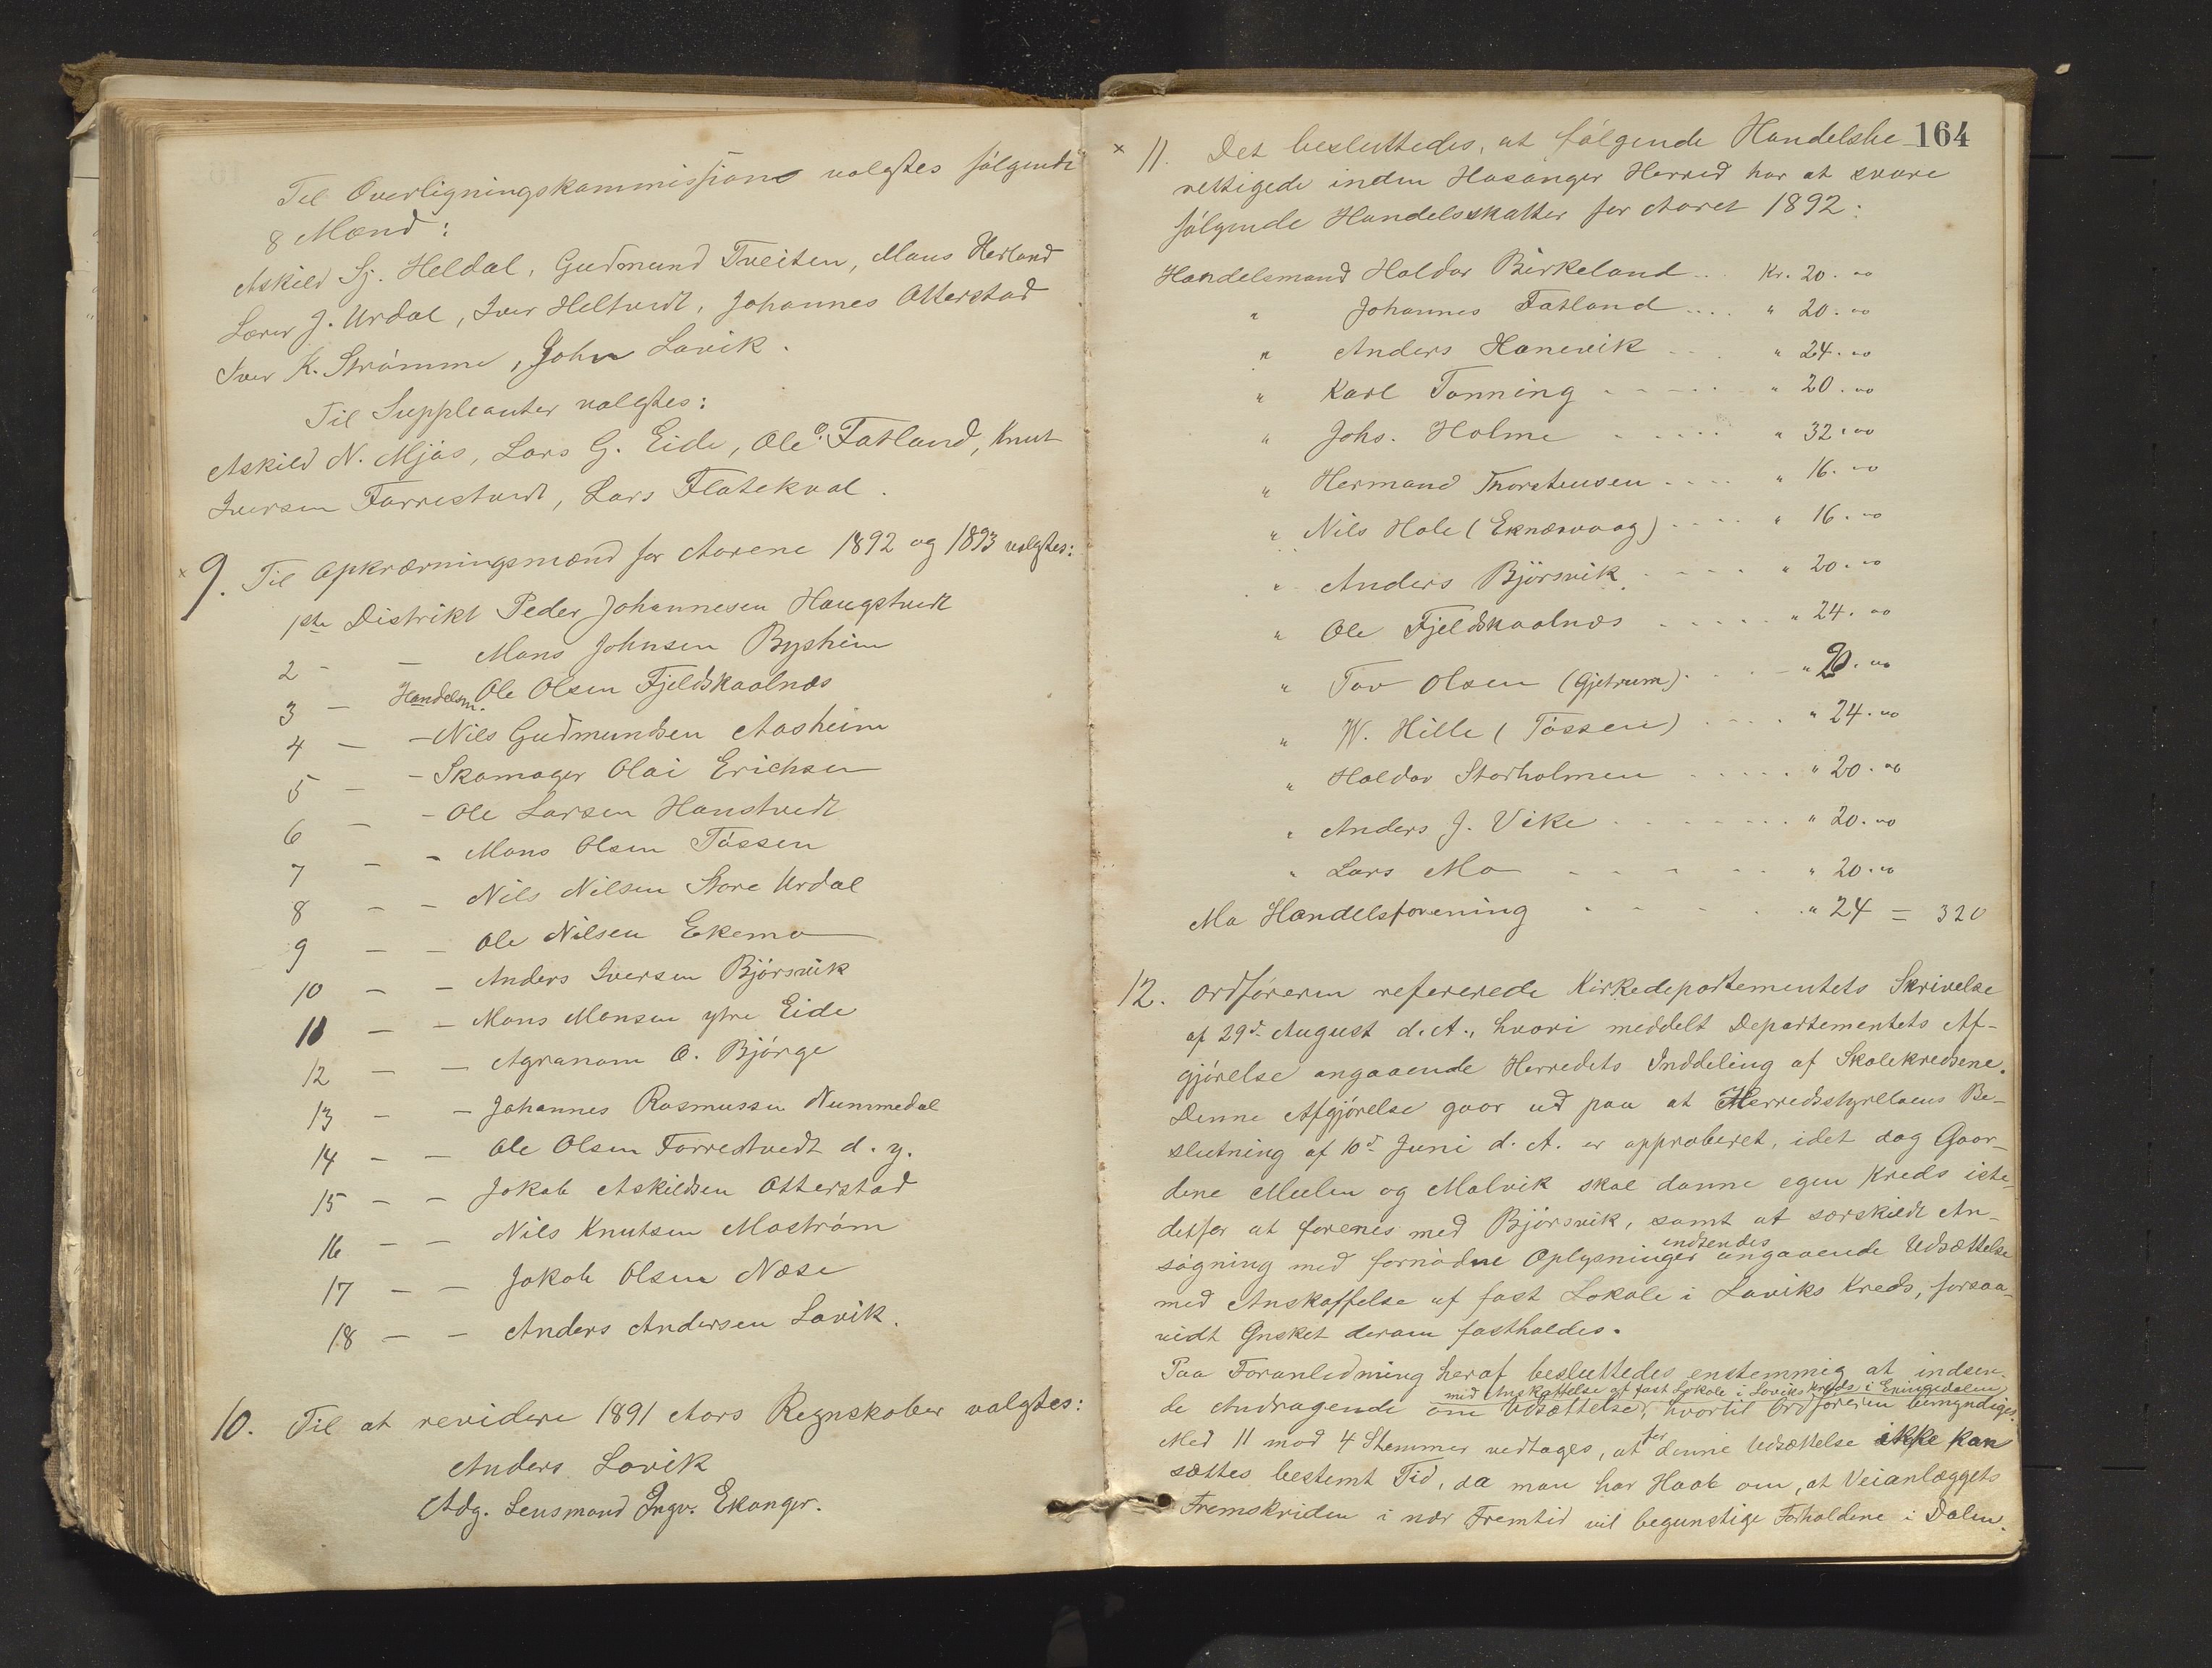 Til Overligningskommission valgtes følgende
8 Mænd:
Askild Sj. Heldal, Gudmund Tveiten, Mons Herland
Lærer J. Urdal, Iver Heltvedt, Johannes Otterstad
Iver K. Strömme, John Lavik.
Til Suppleanter valgtes:
Askild N. Mjøs, Lars G. Eide, Ole O. Fatland, Knut
Iversen Farrestvedt, Lars Flatekval.
x 9. Til Opkrævningsmænd for Aarene 1892 og 1893 valgtes:
1ste Distrikt Peder Johannesen Haugstvedt
2 - - Mons Johnsen Bysheim
3 - Handelsm. Ole Olsen Fjeldskaalnæs
4 - - Nils Gudmundsen Aasheim
5 - - Skomager Olai Erichsen
6 - - Ole Larsen Hanstvedt
7 - - Mons Olsen Tössen
8 - - Nils Nilsen Store Urdal
9 - - Ole Nilsen Ekemo
10 - - Anders Iversen Björsvik
11 - - Mons Monsen ytre Eide
12 - - Agronom O. Bjørge
13 - - Johannes Rasmussen Nummedal
14 - - Ole Olsen Farrestvedt d. y.
15 - - Jakob Askildsen Otterstad
16 - - Nils Knutsen Mostrøm
17 - - Jakob Olsen Næse
18 - - Anders Andersen Lavik.
10. Til at revidere 1891 Aars Regnskaber valgtes:
Anders Lavik
Adg. Lensmand Ingv. Ekanger.
164
x 11. Det besluttedes, at følgende Handelsbe-
rettigede inden Hosanger Herred har at svare
følgende Handelsskatter for Aaret 1892:
Handelsmand Haldor Birkeland .. Kr. 20.00
" Johannes Fatland .... " 20.00
" Anders Hanevik ... " 24.00
" Karl Tonning ..... " 20.00
" Johs. Holme ..... " 32.00
" Hermand Thorstensen .... " 16.00
" Nils Hole (Eknæsvaag) .... " 16.00
" Anders Björsvik .... " 20.00
" Ole Fjeldskaalnæs ..... " 24.00
" Tov Olsen (Gjetrum) .... " 20.00
" W. Hille (Tössen) .... " 24.00
" Haldor Storholmen ..... " 20.00
" Anders J. Vike ....... " 20.00
" Lars Mo ..... " 20.00
Mo Handelsforening ..... " 24 = 320
12. Ordføreren refererede Kirkedepartementets Skrivelse
af 29d August d. A., hvori meddelt Departementets Af-
gjørelse angaaende Herredets Inddeling af Skolekredsene.
Denne Afgjørelse gaar ud paa at Herredsstyrelsens Be-
slutning af 10d Juni d. A. er approberet, idet dog Gaar-
dene Mulen og Molvik skal danne egen Kreds iste-
detfor at forenes med Björsvik, samt at særskildt An-
søgning med fornødne Oplysninger indsendes angaaende Udsættelse
med Anskaffelse af fast Lokale i Laviks Kreds, forsaa-
vidt Ønsket derom fastholdes.
Paa Foranledning heraf besluttedes enstemmig at indsen-
de Andragende om Udsættelse med Anskaffelse af fast Lokale i Laviks Kreds i Eksingedalen, hvortil Ordføreren bemyndiges.
Med 11 mod 4 Stemmer vedtages, at for denne Udsættelse ikke kan
sættes bestemt Tid, da man har Haab om, at Veianlæggets
Fremskriden i nær Fremtid vil begunstige Forholdene i Dalen.